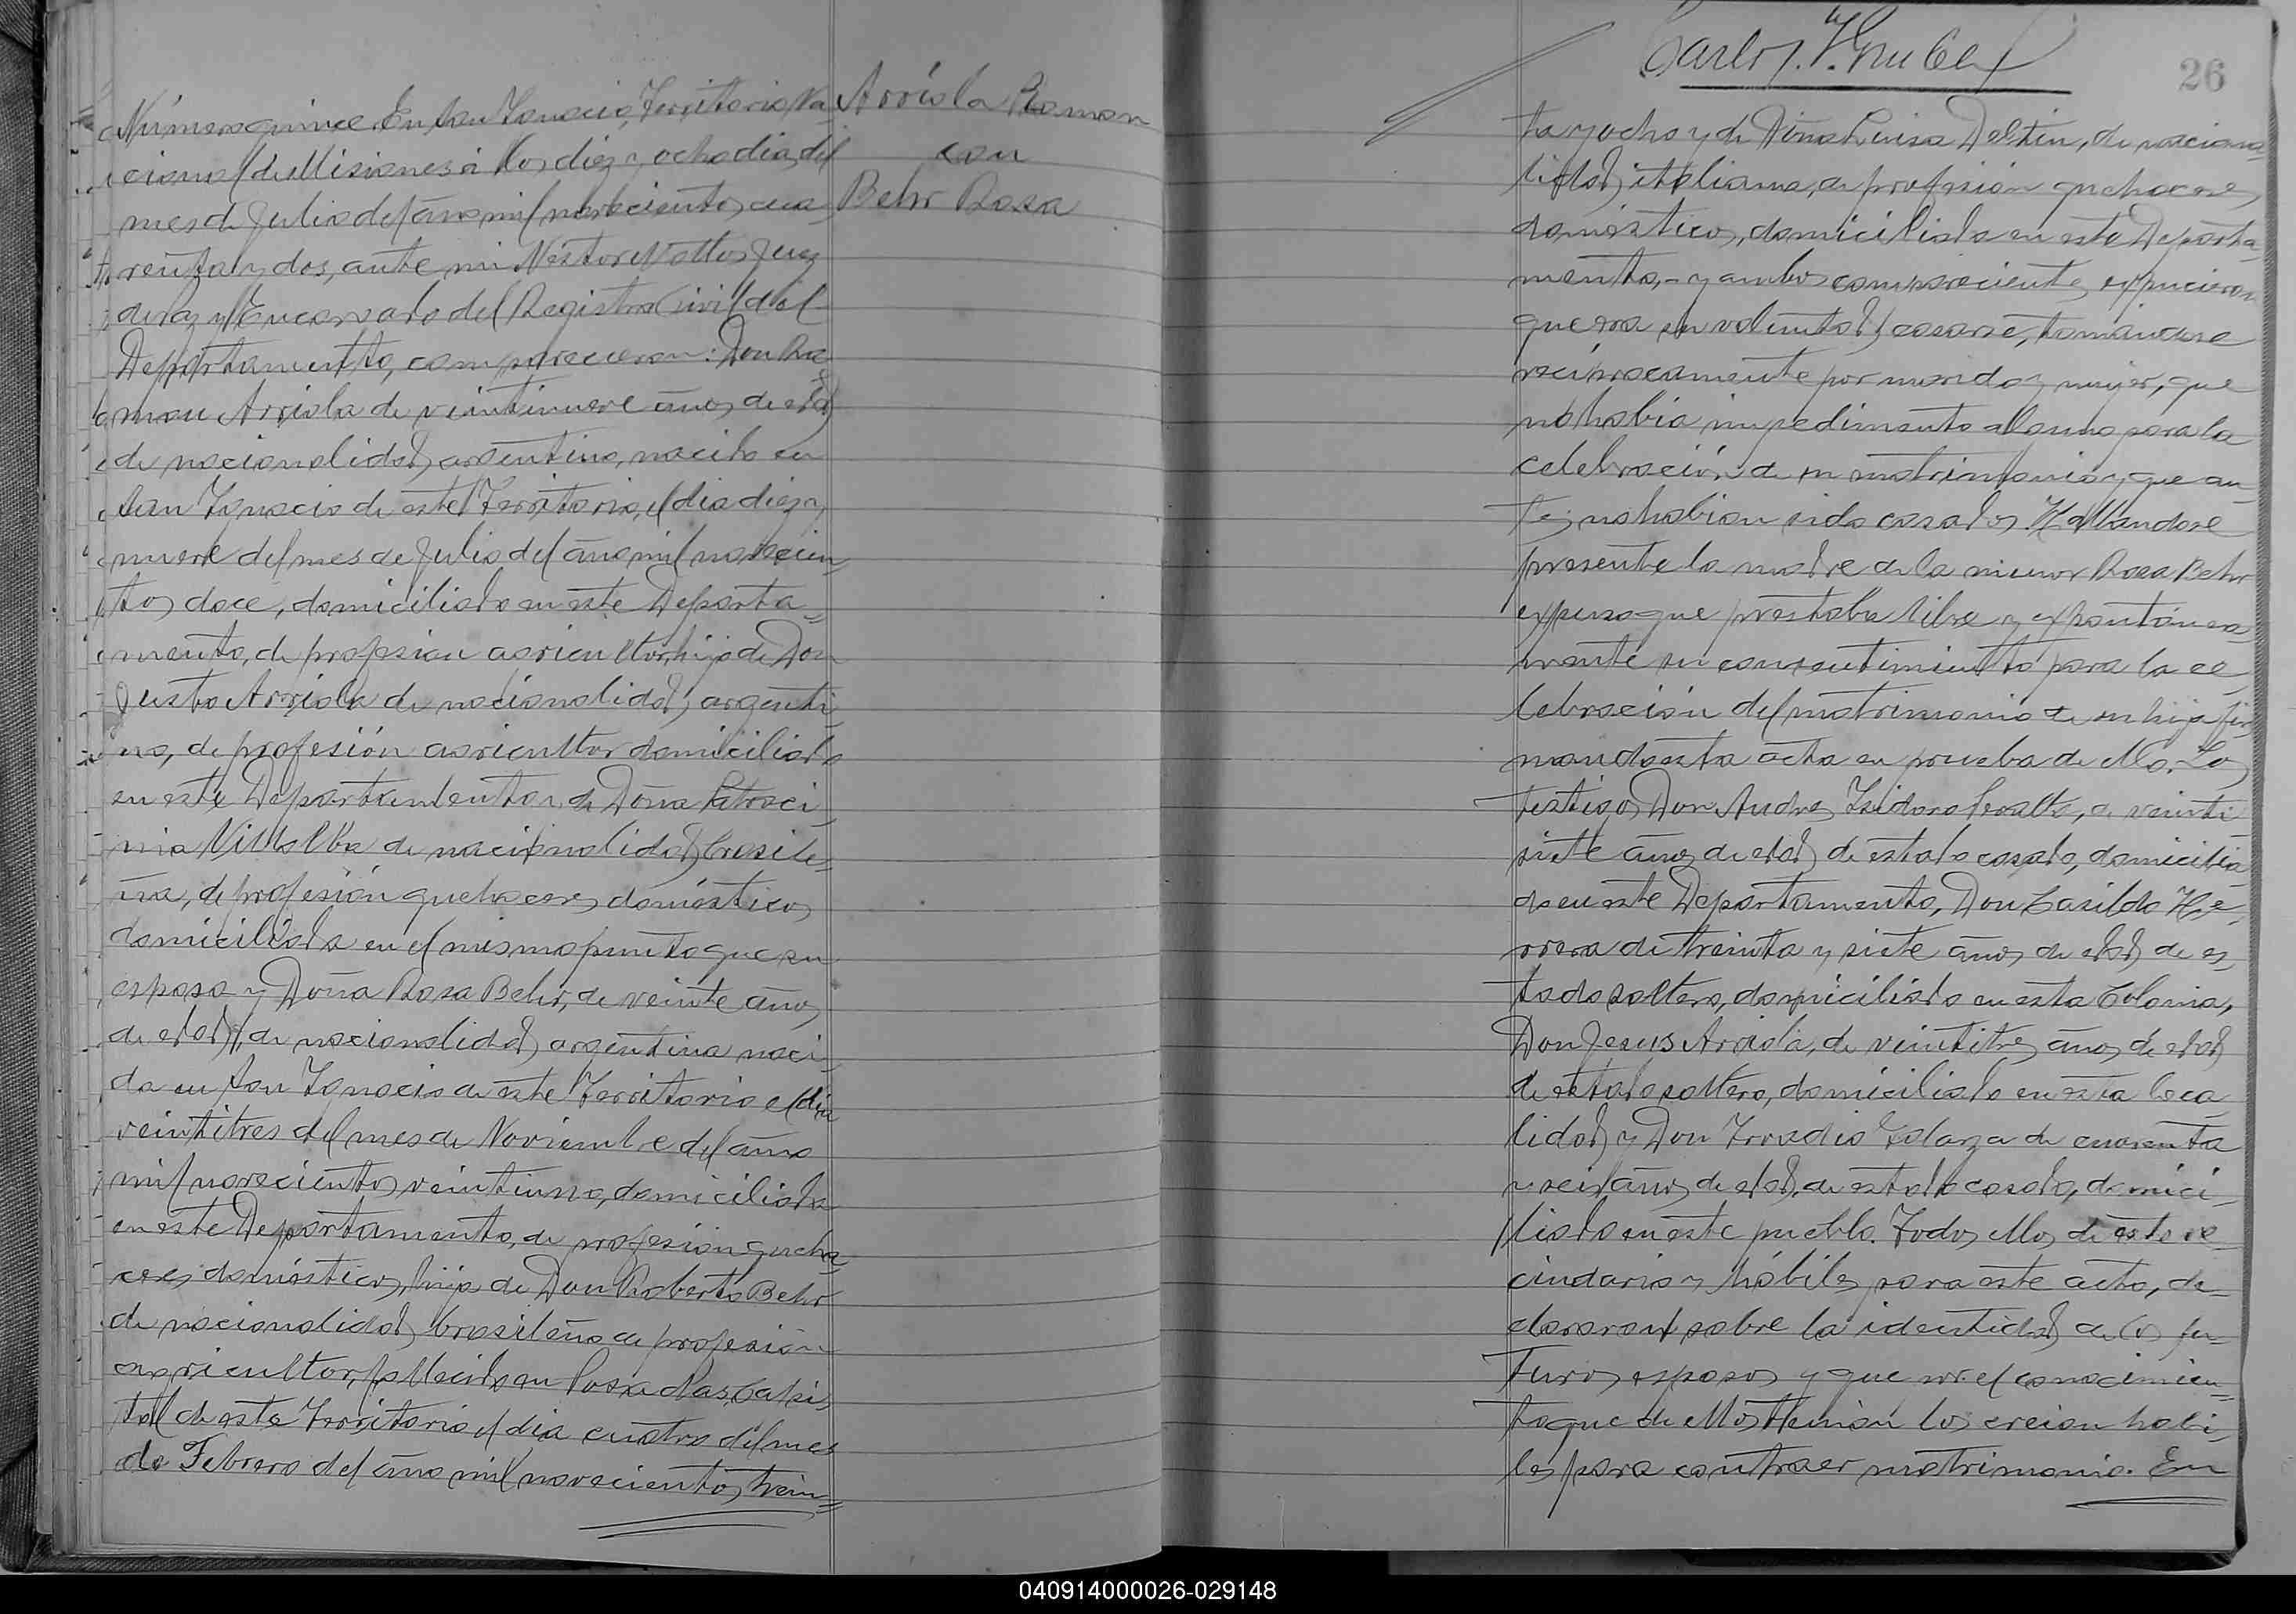 Número quince. En San Ignacio, Territorio Na-
cional de Misiones á los diez y ocho dias del
mes de Julio del año mil novecientos cua-
renta y dos, ante mi Néstor Matto, Juez
de Paz y Encargado del Registro Civil del
Departamento, comparecieron: Don Ra-
mon Arriola de veintinueve años de edad
de nacionalidad argentino, nacido en
San Ignacio de este Territorio, el dia diez y
nueve del mes de Julio del año mil novecien-
tos doce, domiciliado en este Departa-
mento, de profesion agricultor, hijo de Don
Justo Arriola de nacionalidad argenti-
no, de profesión agricultor domiciliado
en este Departamento y de Doña Patroci-
nia Villalba de nacionalidad brasile-
ña, de profesión quehaceres domésticos
domiciliada en el mismo punto que su
esposo y Doña Rosa Behr, de veinte años
de edad, de nacionalidad argentina naci-
da en San Ignacio de este Territorio el dia
veintitres del mes de Noviembre del año
mil novecientos veintiuno, domiciliada
en este Departamento, de profesión queha-
ceres domésticos, hija de Don Roberto Behr
de nacionalidad brasileño de profesión
agricultor, fallecido en Posadas, Capi-
tal de este Territorio el dia cuatro del mes
de Febrero del año mil novecientos, trein-
Arriola Ramon
con
Behr Rosa
Carlos
26
ta y ocho y de Doña Luisa Deltin, de naciona-
lidad italiana, de profesión quehaceres
domésticos, domiciliada en este Departa-
mento,- y ambos comparecientes expucieron
que era su voluntad casarse, tomándose
recíprocamente por marido y mujer, que
no habia impedimento alguno para la
celebración de su matrimonio y que an-
tes no habian sido casados. Hallandose
presente la madre de la menor Rosa Behr
expuso que prestaba libre y expontánea-
mente su consentimiento para la ce-
lebración del matrimonio de su hija fir-
mando esta acta en prueba de ello. Los
testigos Don Andres Isidoro, de veinti-
siete años de edad de estado casado, domicilia-
do en este Departamento, Don Casildo He-
rrera de treinta y siete años de edad de es-
tado soltero, domiciliado en esta Colonia,
Don Jesus Arriola, de veintitres años de edad
de estado soltero, domiciliado en esta loca-
lidad y Don Irradio Galarza de cuarenta
y seis años de edad, de estado casado, domici-
liado en este pueblo. Todos ellos de este ve-
cindario y hábiles para este acto, de-
clararon sobre la identidad de los fu-
turos esposos y que por el conocimien-
to que de ellos tenian los creian habi-
les para contraer matrimonio. En
040914000026-029148